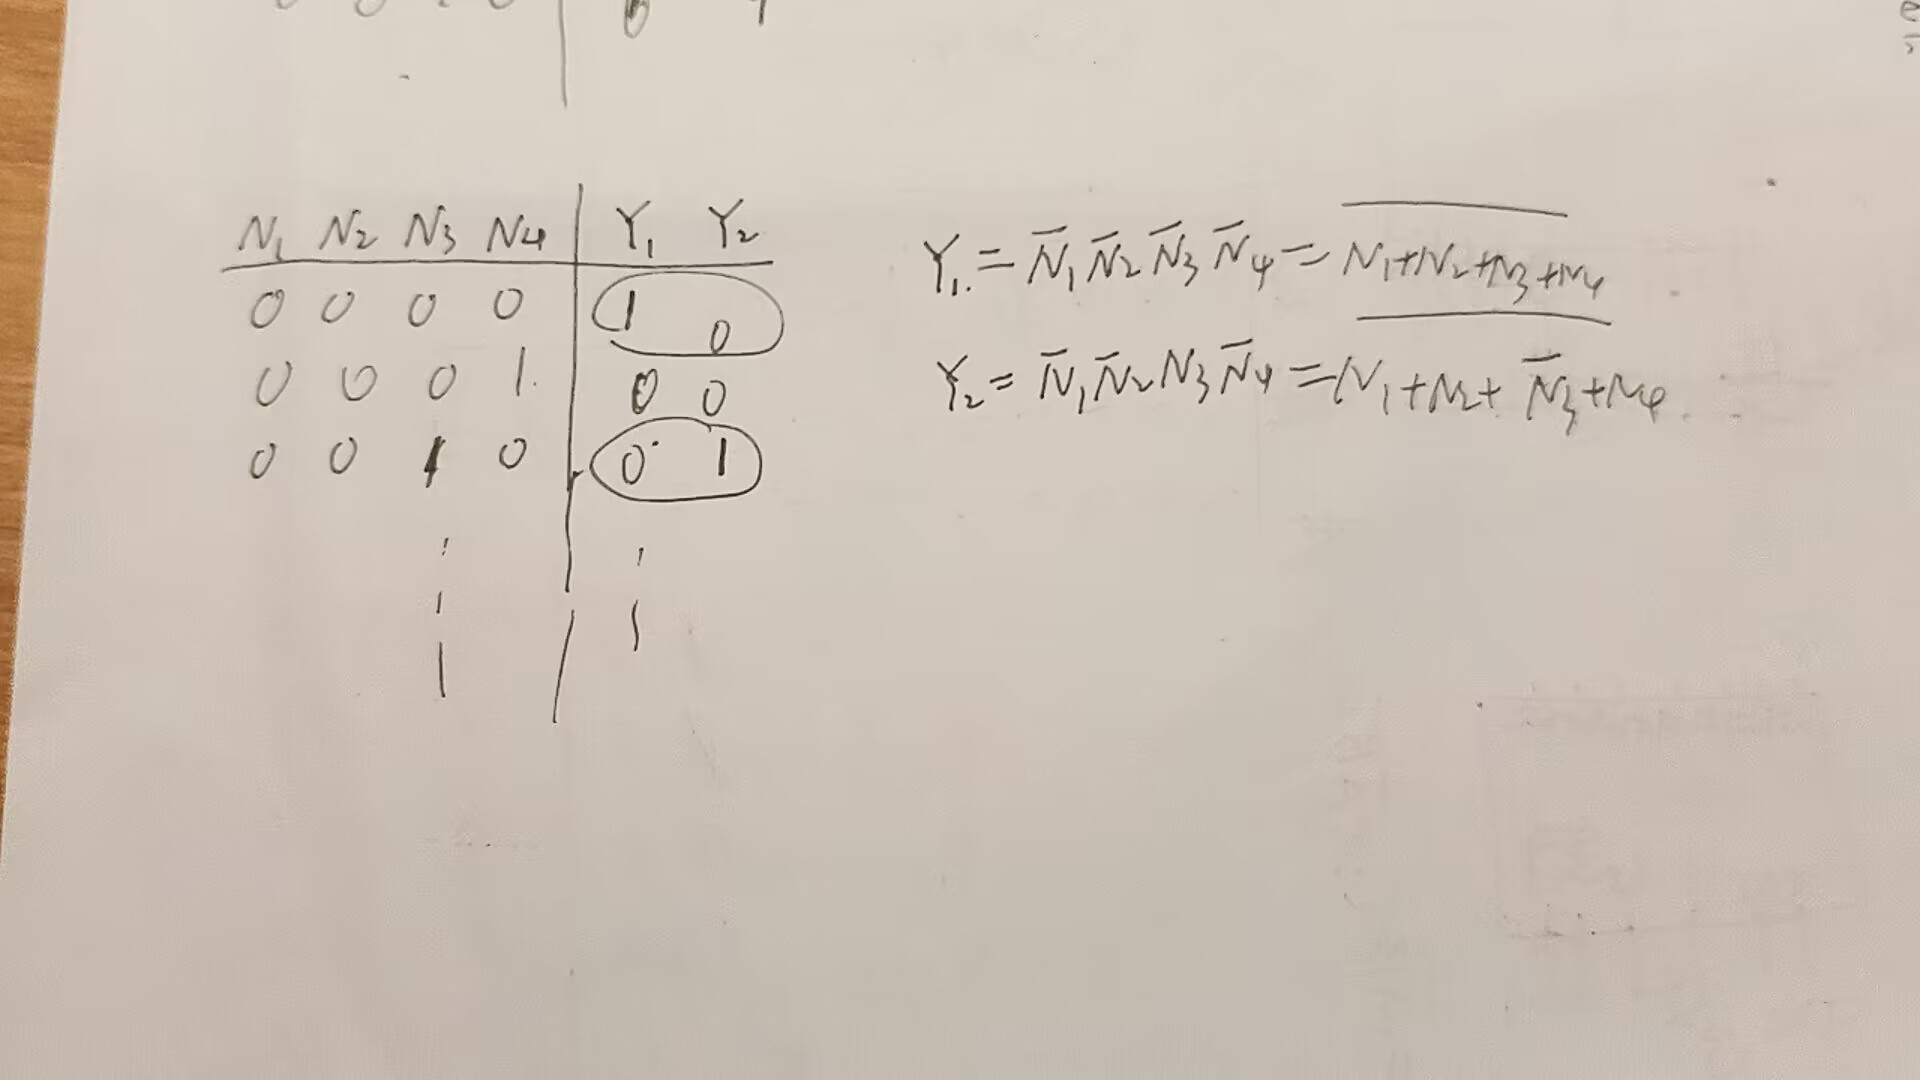 N₁ N₂ N₃ N₄ Y₁ Y₂
0 0 0 0 1 0
0 0 0 1 0 0
0 0 1 0 0 1
Y₁ = N̅₁ N̅₂ N̅₃ N̅₄ = \overline{N₁+N₂+N₃+N₄}
Y₂ = N̅₁ N̅₂ N₃ N̅₄ = \overline{N₁+N₂+N̅₃+N₄}